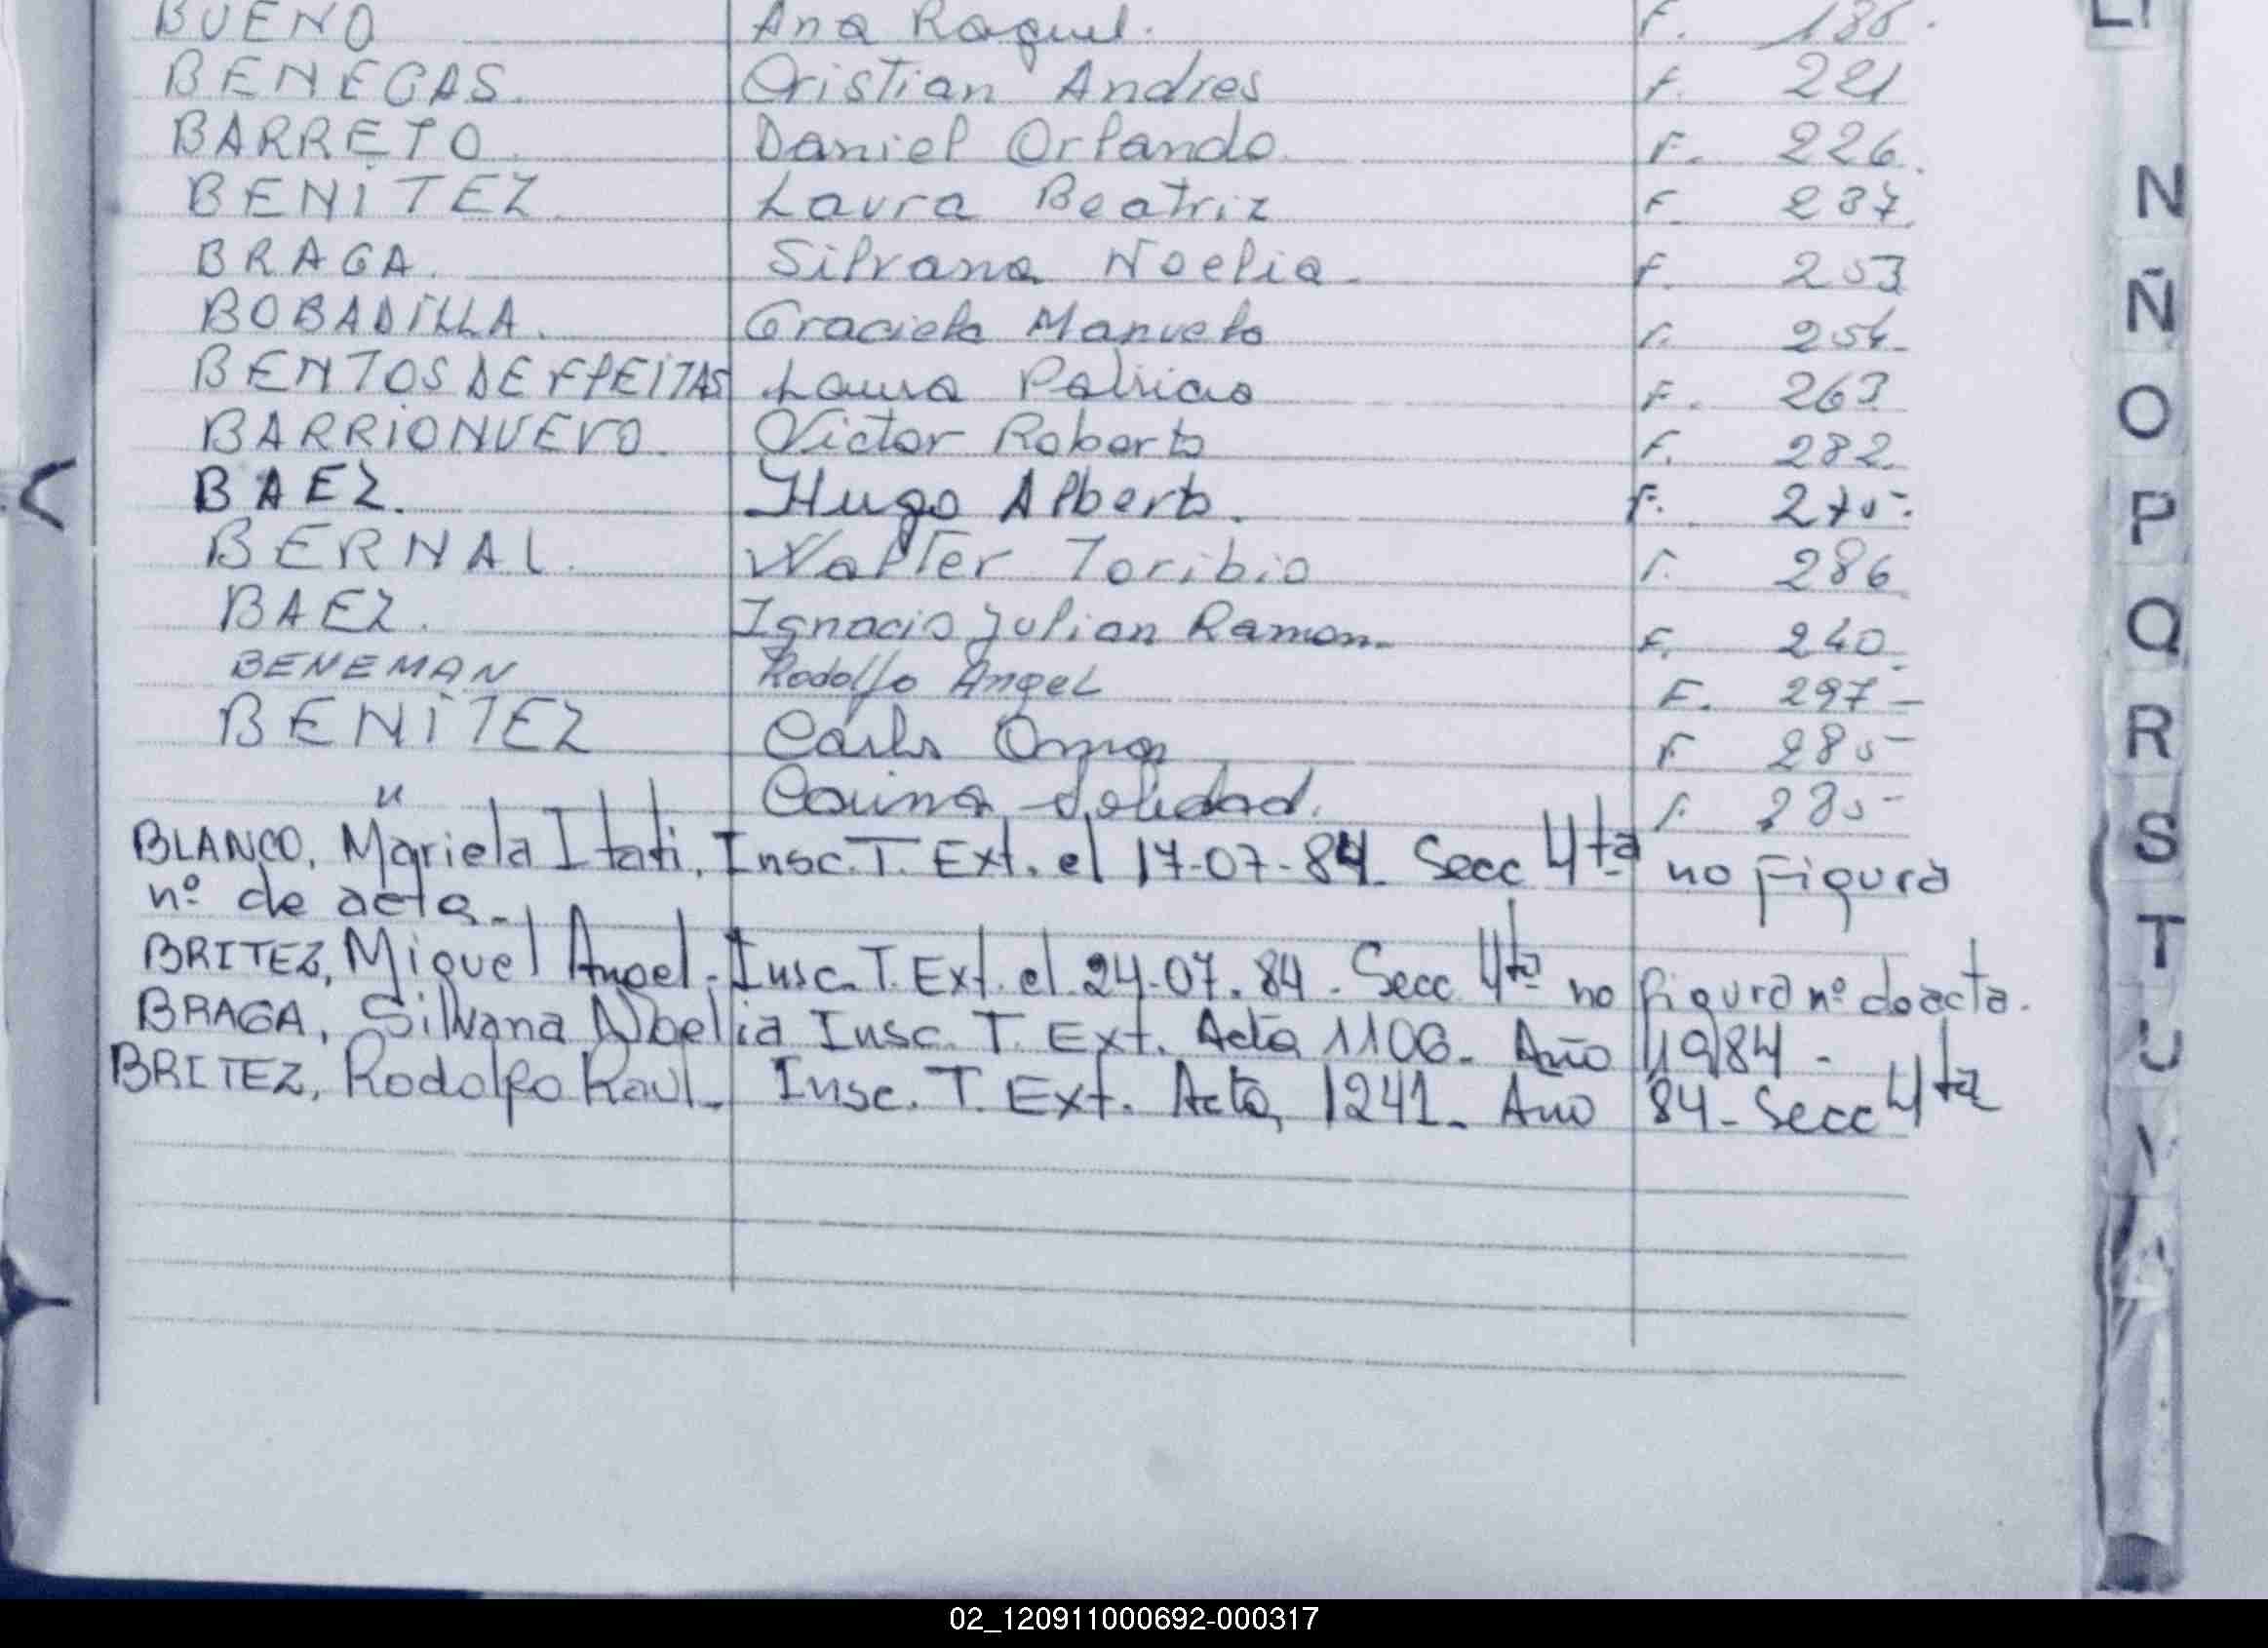 BUENO Ana Raquel. F. 186.
BENEGAS. Cristian Andres F. 221
BARRETO. Daniel Orlando. F. 226.
BENITEZ. Laura Beatriz F. 237.
BRAGA. Silvana Noelia. F. 253
BOBADILLA. Graciela Manuela F. 254.
BENTOS DE FREITAS Laura Patricia F. 263
BARRIONUEVO. Victor Roberto F. 282.
BAEZ. Hugo Alberto. F. 275-
BERNAL. Walter Toribio F. 286.
BAEZ. Ignacio Julian Ramon. F. 240.
BENEMAN Rodolfo Angel F. 297-
BENITEZ Carlos Omar F 285-
" Corina Soledad. F. 285-
BLANCO, Mariela Itati, Insc. T. Ext. el 17-07-84. Secc 4ta no figura
nº de acta.-
BRITEZ, Miguel Angel. Insc. T. Ext. el 24-07-84. Secc 4ta no figura nº de acta.
BRAGA, Silvana Noelia Insc. T. Ext. Acta 1106. Año 1984-
BRITEZ, Rodolfo Raul. Insc. T. Ext. Acta 1241. Año 84- Secc 4ta
N
Ñ
O
P
Q
R
S
T
U
V
02_120911000692-000317